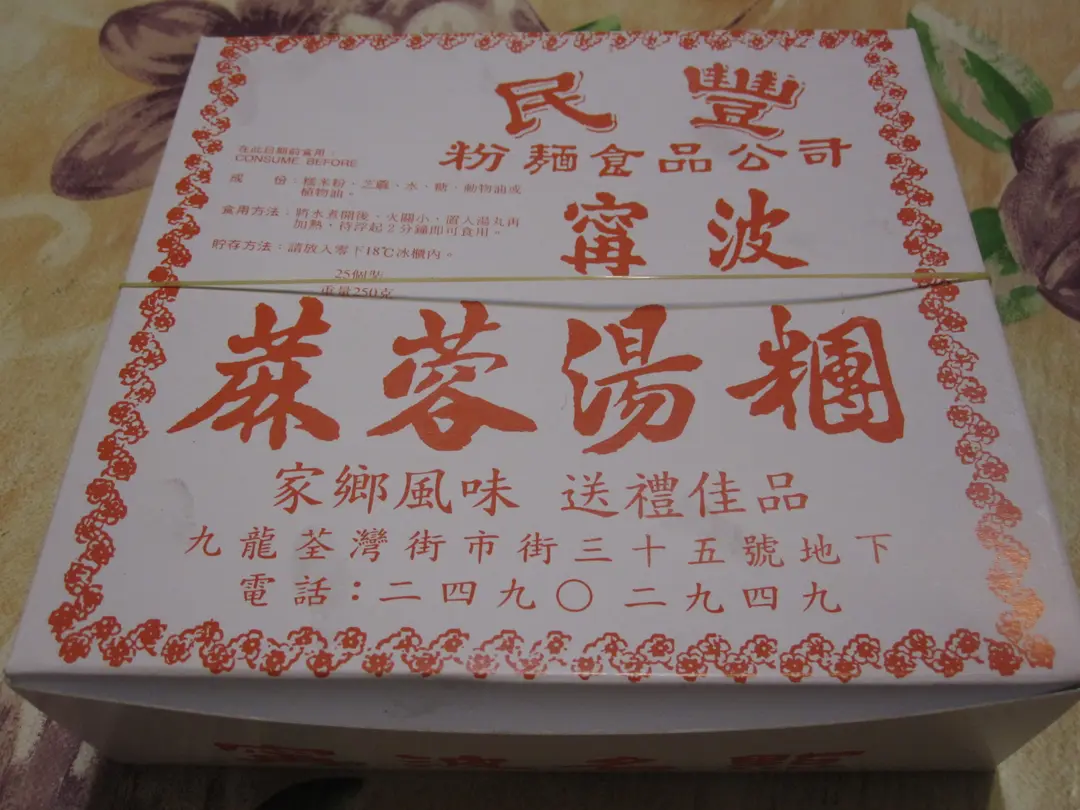 民豐
粉麵食品公司
在此日期前食用：
CONSUME BEFORE
成　份：糯米粉、芝麻、水、糖、動物油或
植物油。
食用方法：將水煮開後，火關小，置入湯丸再
加熱，待浮起2分鐘即可食用。
貯存方法：請放入零下18℃冰櫃內。
25個裝
重量250克
寗波
蔴蓉湯糰
家鄉風味 送禮佳品
九龍荃灣街市街三十五號地下
電話：二四九〇二九四九